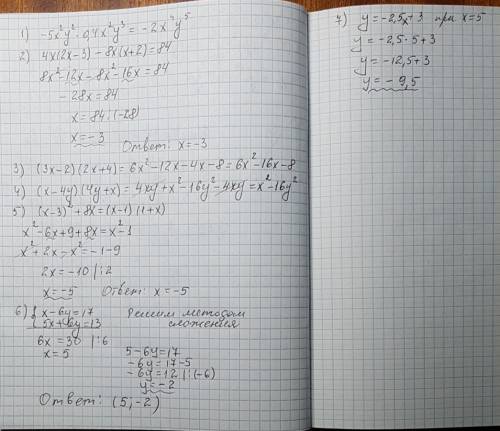 1) -5x²y² · 0,4x²y³ = -2x⁴y⁵
2) 4x(2x-3) - 8x(x+2) = 84
8x² - 12x - 8x² - 16x = 84
- 28x = 84
x = 84 : (-28)
x = -3
Ответ: x = -3
3) (3x-2)(2x+4) = 6x² - 12x - 4x - 8 = 6x² - 16x - 8
4) (x-4y)(4y+x) = 4xy + x² - 16y² - 4xy = x² - 16y²
5) (x-3)² + 8x = (x-1)(1+x)
x² - 6x + 9 + 8x = x² - 1
x² + 2x - x² = -1 - 9
2x = -10 | : 2
x = -5 Ответ: x = -5
6) { x - 6y = 17 Решим методом
5x + 6y = 13 сложения
6x = 30 | : 6
x = 5
5 - 6y = 17
-6y = 17 - 5
-6y = 12 | : (-6)
y = -2
Ответ: (5, -2)
7) y = -2,5x + 3 при x = 5
y = -2,5 · 5 + 3
y = -12,5 + 3
y = -9,5